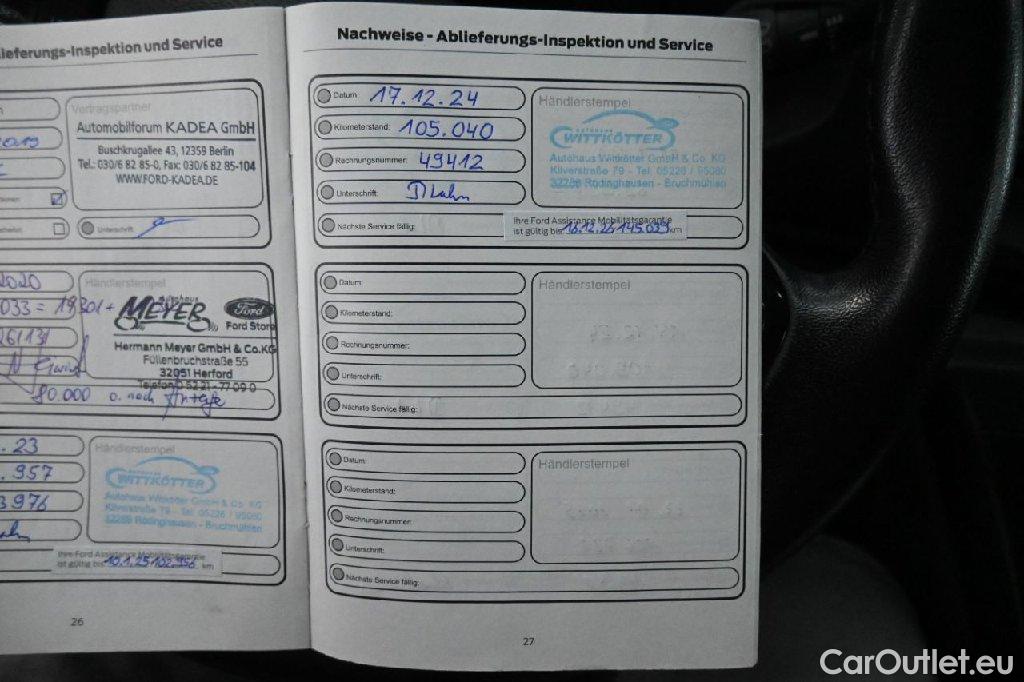 lieferungs-Inspektion und Service
Vertragspartner
Automobilforum KADEA GmbH
Buschkrugallee 43, 12359 Berlin
Tel.: 030/6 82 85-0, Fax: 030/6 82 85-104
WWW.FORD-KADEA.DE
Unterschrift:
2020
Händlerstempel
033 = 19301+
Autohaus
MEYER
Ford
Ford Store
Hermann Meyer GmbH & Co.KG
Füllenbruchstraße 55
32051 Herford
Telefon 0 52 21 - 77 09 0
80.000 o. nach Anzeige
. 23
Händlerstempel
. 957
AUTOHAUS
WITTKÖTTER
3976
Autohaus Wittkötter GmbH & Co. KG
Kilverstraße 79 - Tel. 05226 / 95080
32289 Rödinghausen - Bruchmühlen
Ihre Ford Assistance Mobilitätsgarantie
ist gültig bis 10.1.25 102.956 km
26
Nachweise - Ablieferungs-Inspektion und Service
Datum: 17.12.24
Händlerstempel
Kilometerstand: 105.040
AUTOHAUS
WITTKÖTTER
Rechnungsnummer: 49412
Autohaus Wittkötter GmbH & Co. KG
Kilverstraße 79 - Tel. 05226 / 95080
32289 Rödinghausen - Bruchmühlen
Unterschrift:
Nächste Service fällig:
Ihre Ford Assistance Mobilitätsgarantie
ist gültig bis 16.12.26 145.039 km
Datum:
Händlerstempel
Kilometerstand:
Rechnungsnummer:
Unterschrift:
Nächste Service fällig:
Datum:
Händlerstempel
Kilometerstand:
Rechnungsnummer:
Unterschrift:
Nächste Service fällig:
27
CarOutlet.eu